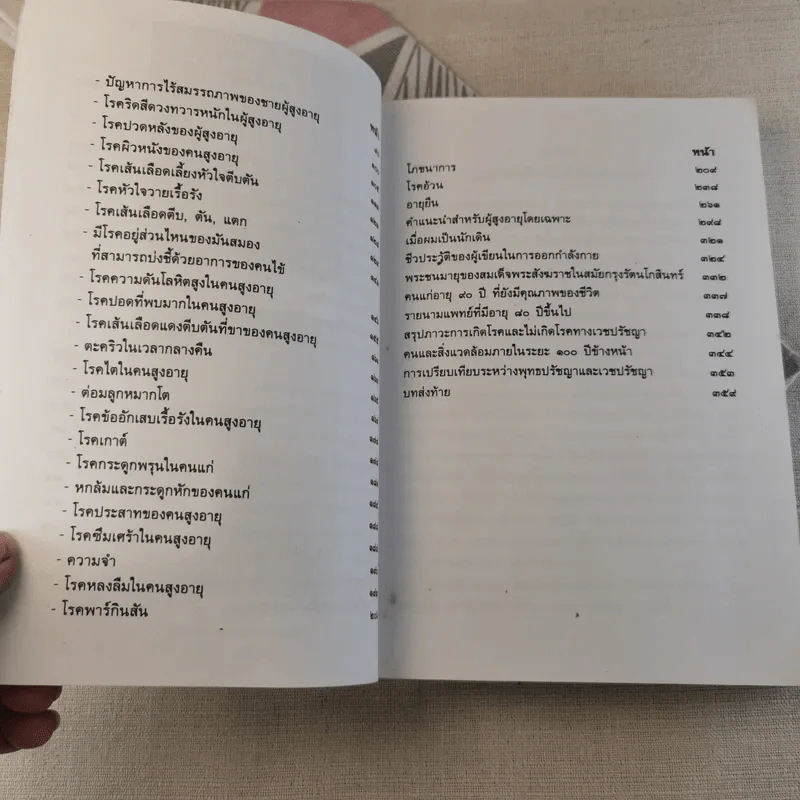 - ปัญหาการไร้สมรรถภาพของชายผู้สูงอายุ
- โรคริดสีดวงทวารหนักในผู้สูงอายุ
- โรคปวดหลังของผู้สูงอายุ
- โรคผิวหนังของคนสูงอายุ
- โรคเส้นเลือดเลี้ยงหัวใจตีบตัน
- โรคหัวใจวายเรื้อรัง
- โรคเส้นเลือดตีบ, ตัน, แตก
- มีโรคอยู่ส่วนไหนของมันสมอง
ที่สามารถบ่งชี้ด้วยอาการของคนไข้
- โรคความดันโลหิตสูงในคนสูงอายุ
- โรคปอดที่พบมากในคนสูงอายุ
- โรคเส้นเลือดแดงตีบตันที่ขาของคนสูงอายุ
- ตะคริวในเวลากลางคืน
- โรคไตในคนสูงอายุ
- ต่อมลูกหมากโต
- โรคข้ออักเสบเรื้อรังในคนสูงอายุ
- โรคเกาต์
- โรคกระดูกพรุนในคนแก่
- หกล้มและกระดูกหักของคนแก่
- โรคประสาทของคนสูงอายุ
- โรคซึมเศร้าในคนสูงอายุ
- ความจำ
- โรคหลงลืมในคนสูงอายุ
- โรคพาร์กินสัน
หน้า
โภชนาการ ๒๐๙
โรคอ้วน ๒๓๘
อายุยืน ๒๖๑
คำแนะนำสำหรับผู้สูงอายุโดยเฉพาะ ๒๙๘
เมื่อผมเป็นนักเดิน ๓๒๑
ชีวประวัติของผู้เขียนในการออกกำลังกาย ๓๒๔
พระชนมายุของสมเด็จพระสังฆราชในสมัยกรุงรัตนโกสินทร์ ๓๓๒
คนแก่อายุ ๙๐ ปี ที่ยังมีคุณภาพของชีวิต ๓๓๗
รายนามแพทย์ที่มีอายุ ๘๐ ปีขึ้นไป ๓๓๘
สรุปภาวะการเกิดโรคและไม่เกิดโรคทางเวชปรัชญา ๓๔๒
คนและสิ่งแวดล้อมภายในระยะ ๑๐๐ ปีข้างหน้า ๓๔๔
การเปรียบเทียบระหว่างพุทธปรัชญาและเวชปรัชญา ๓๕๓
บทส่งท้าย ๓๕๙